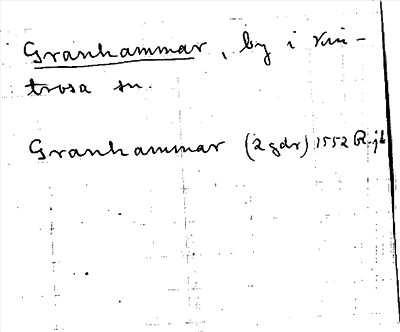 Granhammar, by i Vin-
trosa sn.
Granhammar (2 gdr) 1552 R-jb